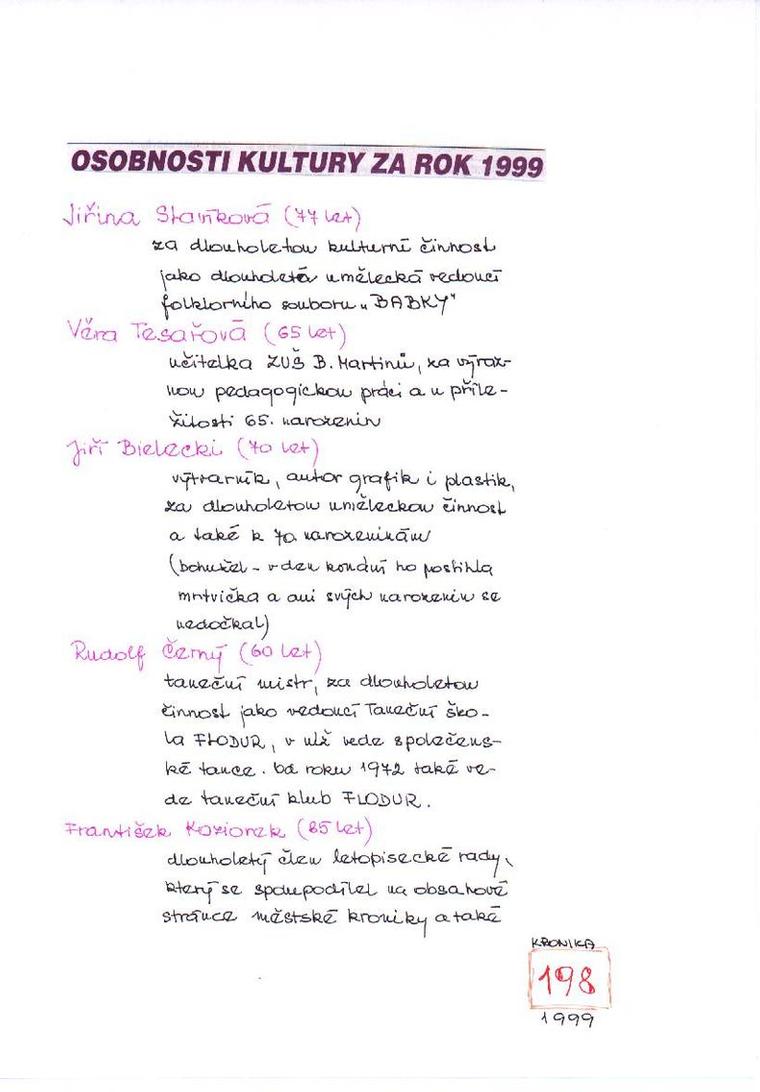 OSOBNOSTI KULTURY ZA ROK 1999
Jiřina Stavíková (77 let)
za dlouholetou kulturní činnost
jako dlouholetá umělecká vedoucí
folklorního souboru „BABKY"
Věra Tesařová (65 let)
učitelka ZUŠ B. Martinů, za výraz-
nou pedagogickou práci a u příle-
žitosti 65. narozenin
Jiří Bielecki (70 let)
výtvarník, autor grafik i plastik,
za dlouholetou uměleckou činnost
a také k 70. narozeninám
(bohužel - v den konání ho postihla
mrtvička a ani svých narozenin se
nedočkal)
Rudolf Černý (60 let)
taneční mistr, za dlouholetou
činnost jako vedoucí Taneční ško-
la FLODUR, v níž vede společens-
ké tance. Od roku 1972 také ve-
de taneční klub FLODUR.
František Koziorek (85 let)
dlouholetý člen letopisecké rady,
který se spolupodílel na obsahové
stránce městské kroniky a také
KRONIKA
198
1999